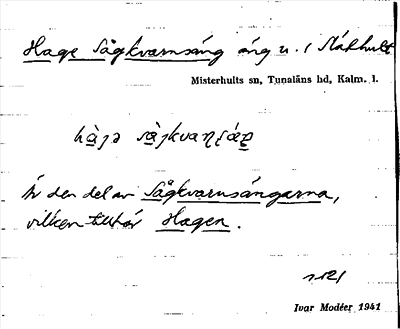 Hage Sågkvarnsäng äng u. / Släthult
Misterhults sn, Tunaläns hd, Kalm. l.
Är den del av Sågkvarnsängarna,
vilken tillhör Hagen.
Ivar Modéer 1941